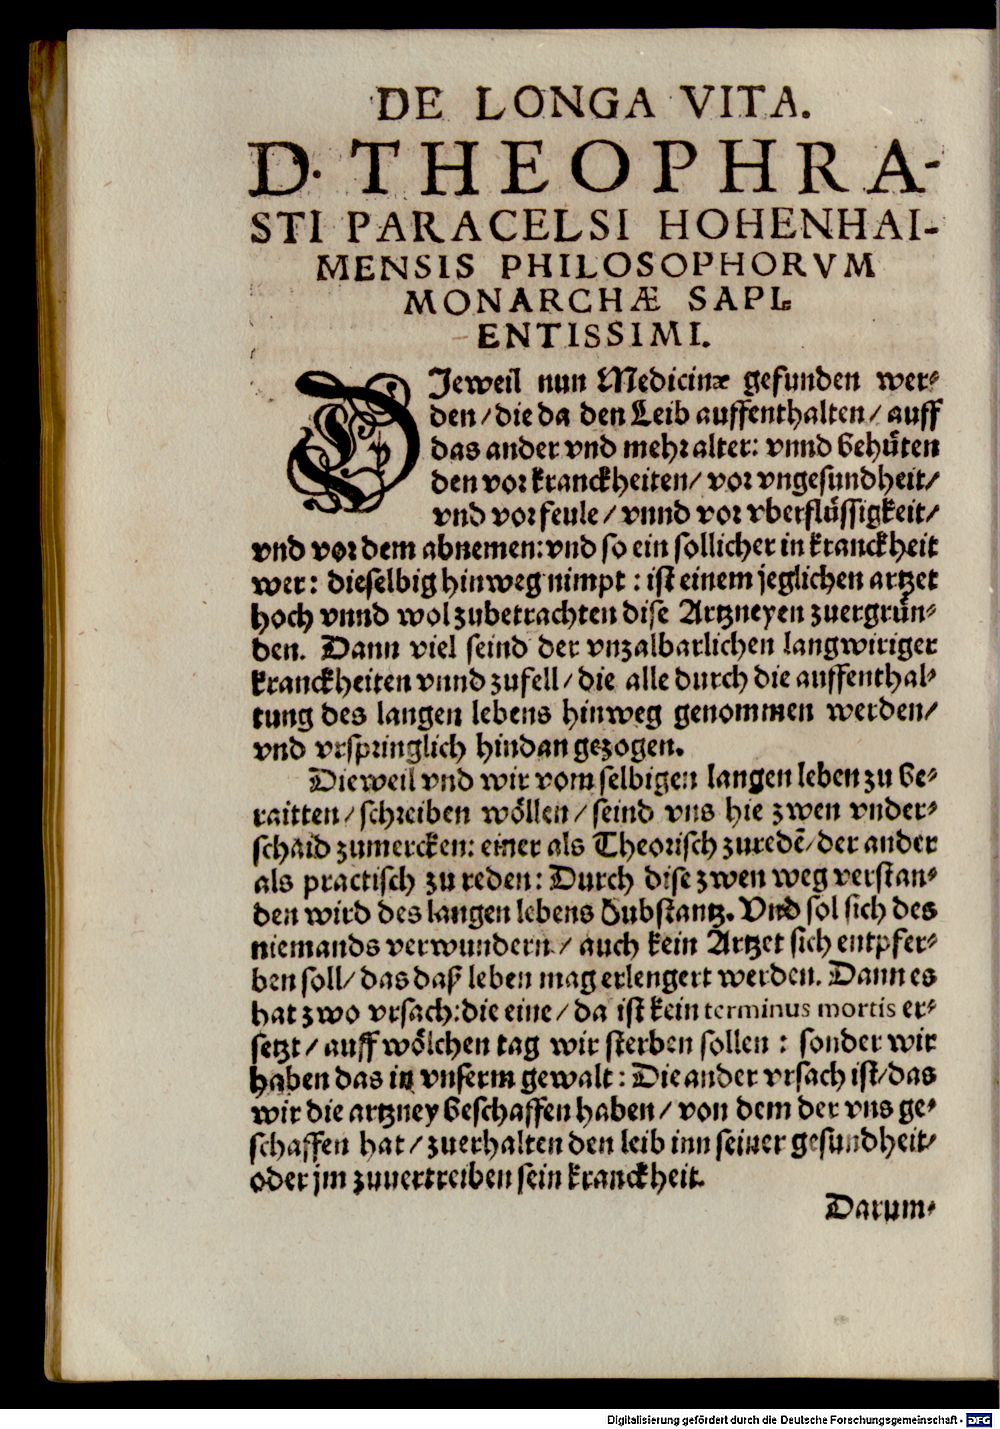 DE LONGA VITA.
D. THEOPHRA-
STI PARACELSI HOHENHAI-
MENSIS PHILOSOPHORVM
MONARCHÆ SAPI-
ENTISSIMI.
DJeweil nun Medicinæ gefunden wer-
den / die da den Leib auffenthalten / auff
das ander vnd mehr alter: vnnd behüten
den vor kranckheiten / vor vngesundheit /
vnd vor feule / vnnd vor vberflüssigkeit /
vnd vor dem abnemen: vnd so ein sollicher in kranckheit
wer: dieselbig hinweg nimpt: ist einem jeglichen artzet
hoch vnnd wol zubetrachten dise Artzneyen zuergrün-
den. Dann viel seind der vnzalbarlichen langwiriger
kranckheiten vnnd zufell / die alle durch die auffenthal-
tung des langen lebens hinweg genommen werden /
vnd vrspringlich hindan gezogen.
Dieweil vnd wir vom selbigen langen leben zu be-
raitten / schreiben wöllen / seind vns hie zwen vnder-
schaid zumercken: einer als Theorisch zuredē / der ander
als practisch zu reden: Durch dise zwen weg verstan-
den wird des langen lebens Substantz. Vnd sol sich des
niemands verwundern / auch kein Artzet sich entpfer-
ben soll / das daß leben mag erlengert werden. Dann es
hat zwo vrsach: die eine / da ist kein terminus mortis er-
setzt / auff wölchen tag wir sterben sollen: sonder wir
haben das in vnserm gewalt: Die ander vrsach ist / das
wir die artzney beschaffen haben / von dem der vns ge-
schaffen hat / zuerhalten den leib inn seiner gesundheit /
oder jm zuuertreiben sein kranckheit.
Darum-
Digitalisierung gefördert durch die Deutsche Forschungsgemeinschaft - DFG